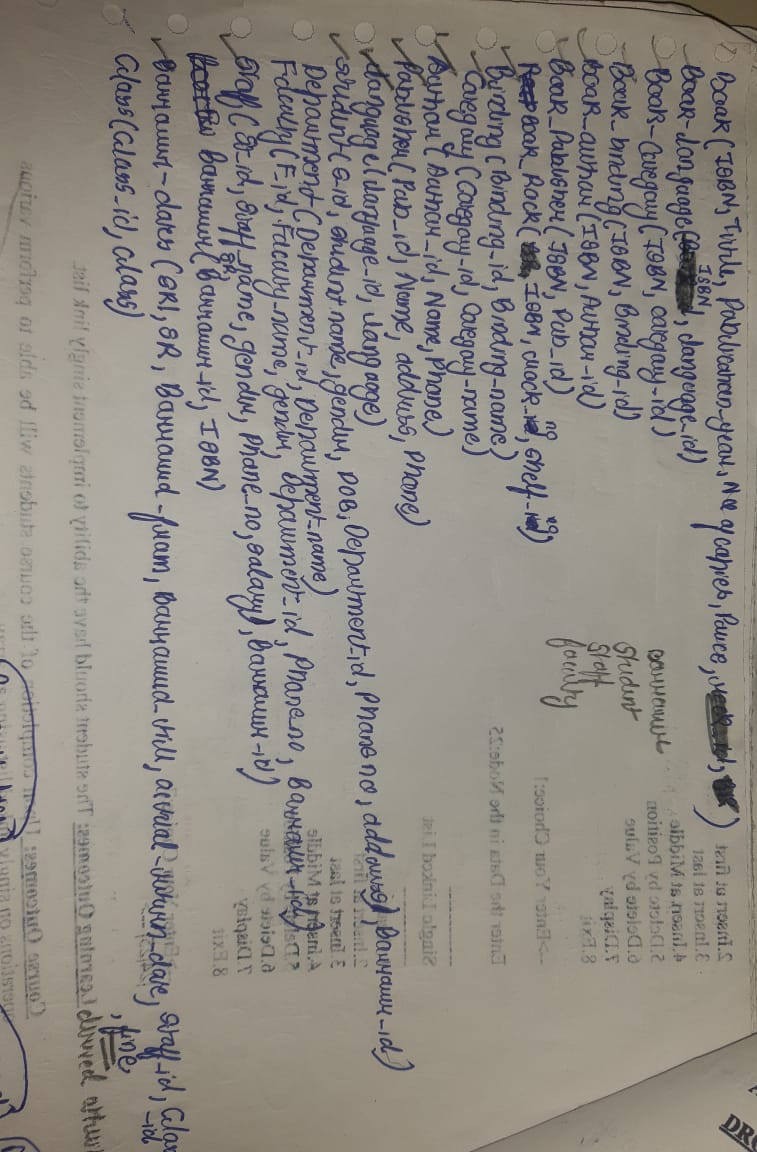 Book(ISBN, Tittle, Publication_year, No of copies, Price,
ISBN
Book-language(, language_id)
Book-Category(ISBN, category-id)
Book_binding(ISBN, Binding_id)
Book_author(ISBN, Author-id)
Book_Publisher(ISBN, Pub_id)
Book_Rock(ISBN, rock_no, shelf_no)
Binding(Binding_id, Binding_name)
Category(Category-id, Category-name)
Author(Author_id, Name, Phone)
Publisher(Pub_id, Name, address, Phone)
language(language_id, language)
Student(S_id, Student name, gender, DOB, Department_id, Phone no, address, Borrower_id)
Department(Department_id, Department_name)
Faculty(F_id, Faculty_name, gender, Department_id, Phone_no, Borrower_id)
Staff(St_id, Staff_name, gender, Phone_no, salary, Borrower_id)
Borrower(SR, Borrower_id, ISBN)
Borrower-dates(SR1, SR, Borrowed_from, Borrowed_till, actual_return_date, Staff_id, Class_id
, fine
Class(Class_id, Class)
Borrower
Student
Staff
faculty
2.Insert at first
3.Insert at last
4.Insert at Middle
5.Delete by Position
6.Delete by Value
7.Display
8.Exit
-->Enter Your Choice:1
Enter the Data in the Node:25
Single Linked List
2.Insert at first
3.Insert at last
4.Insert at Middle
5.Delete by
6.Delete by Value
7.Display
8.Exit
Learning Outcomes: The student should have the ability to implement singly link list.
Course Outcomes: Upon completion of the course students will be able to perform various
operations on singly